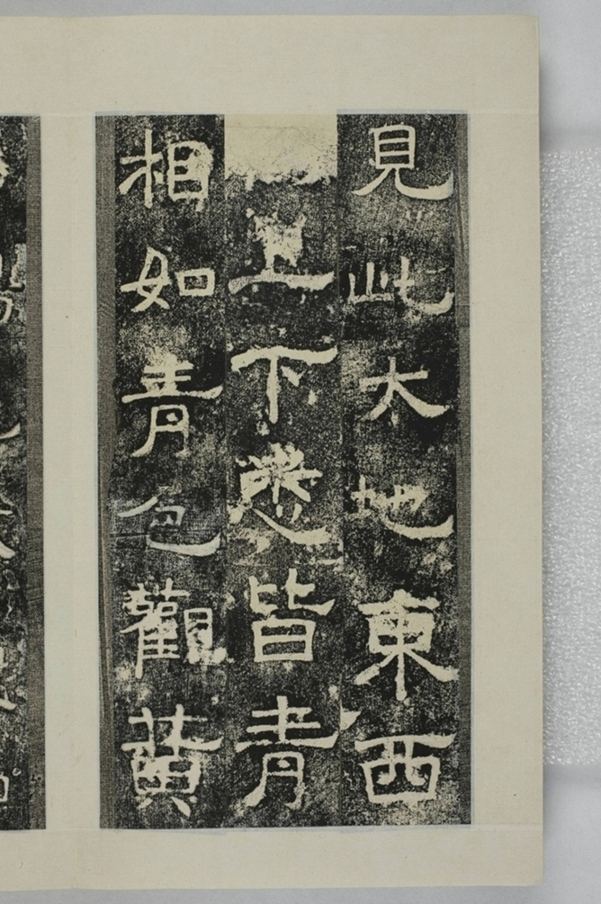 見此大地東西
上下悉皆青
相如青色觀黃